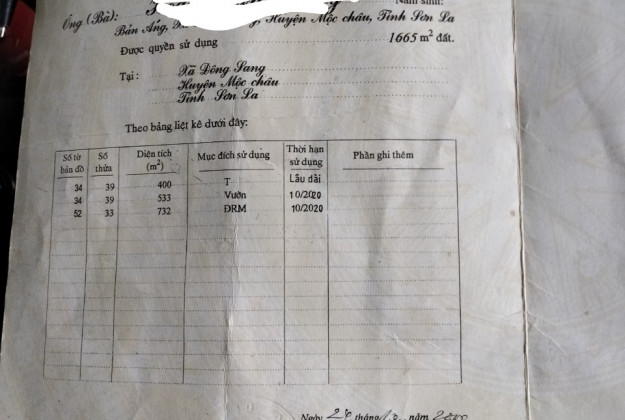 Ông (Bà): Năm sinh:
Bản Áng, Huyện Mộc châu, Tỉnh Sơn La
Được quyền sử dụng 1665 m² đất.
Tại: Xã Đông Sang
Huyện Mộc châu
Tỉnh Sơn La
Theo bảng liệt kê dưới đây:
Số tờ bản đồ Số thửa Diện tích (m²) Mục đích sử dụng Thời hạn sử dụng Phần ghi thêm
34 39 400 T Lâu dài
34 39 533 Vườn 10/2020
52 33 732 ĐRM 10/2020
Ngày tháng năm